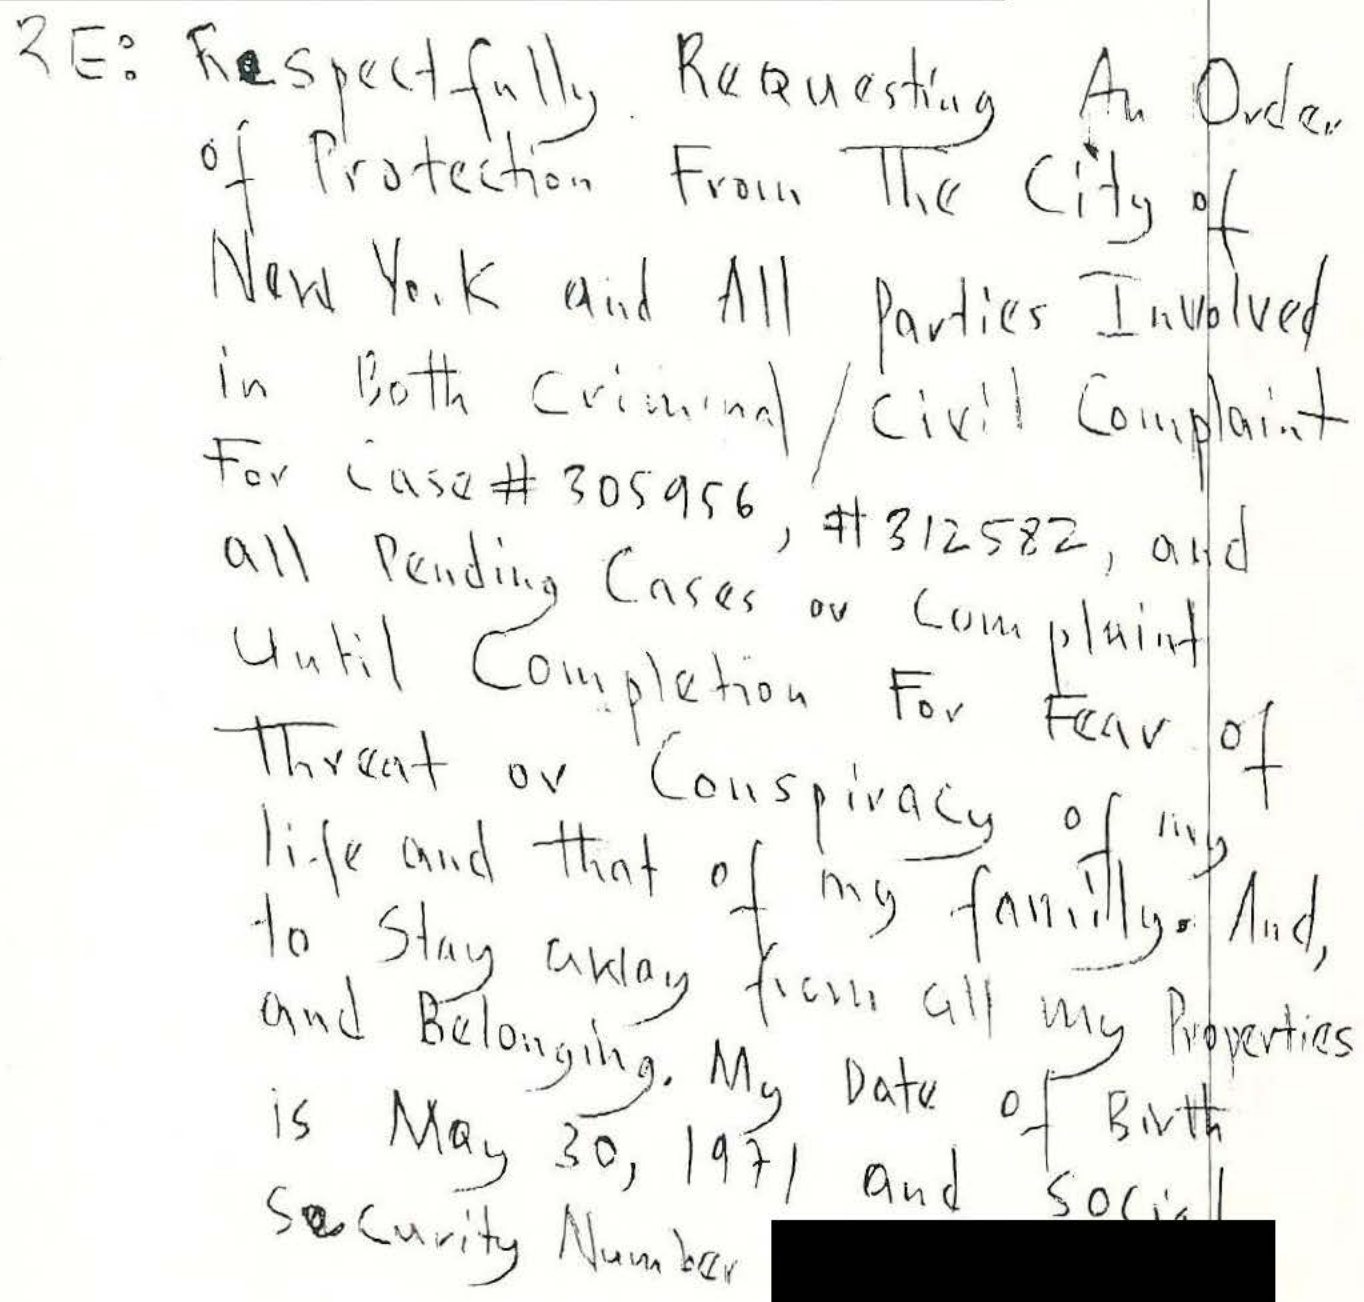 RE: Respectfully Requesting An Order
of Protection From The City of
New York and All Parties Involved
in Both Criminal/Civil Complaint
For Case# 305956, #312582, and
all Pending Cases or Complaint
Until Completion For Fear of
Threat or Conspiracy of my
life and that of my familly. And,
to Stay away from all my Properties
and Belonging. My Date of Birth
is May 30, 1971 and Social
Security Number